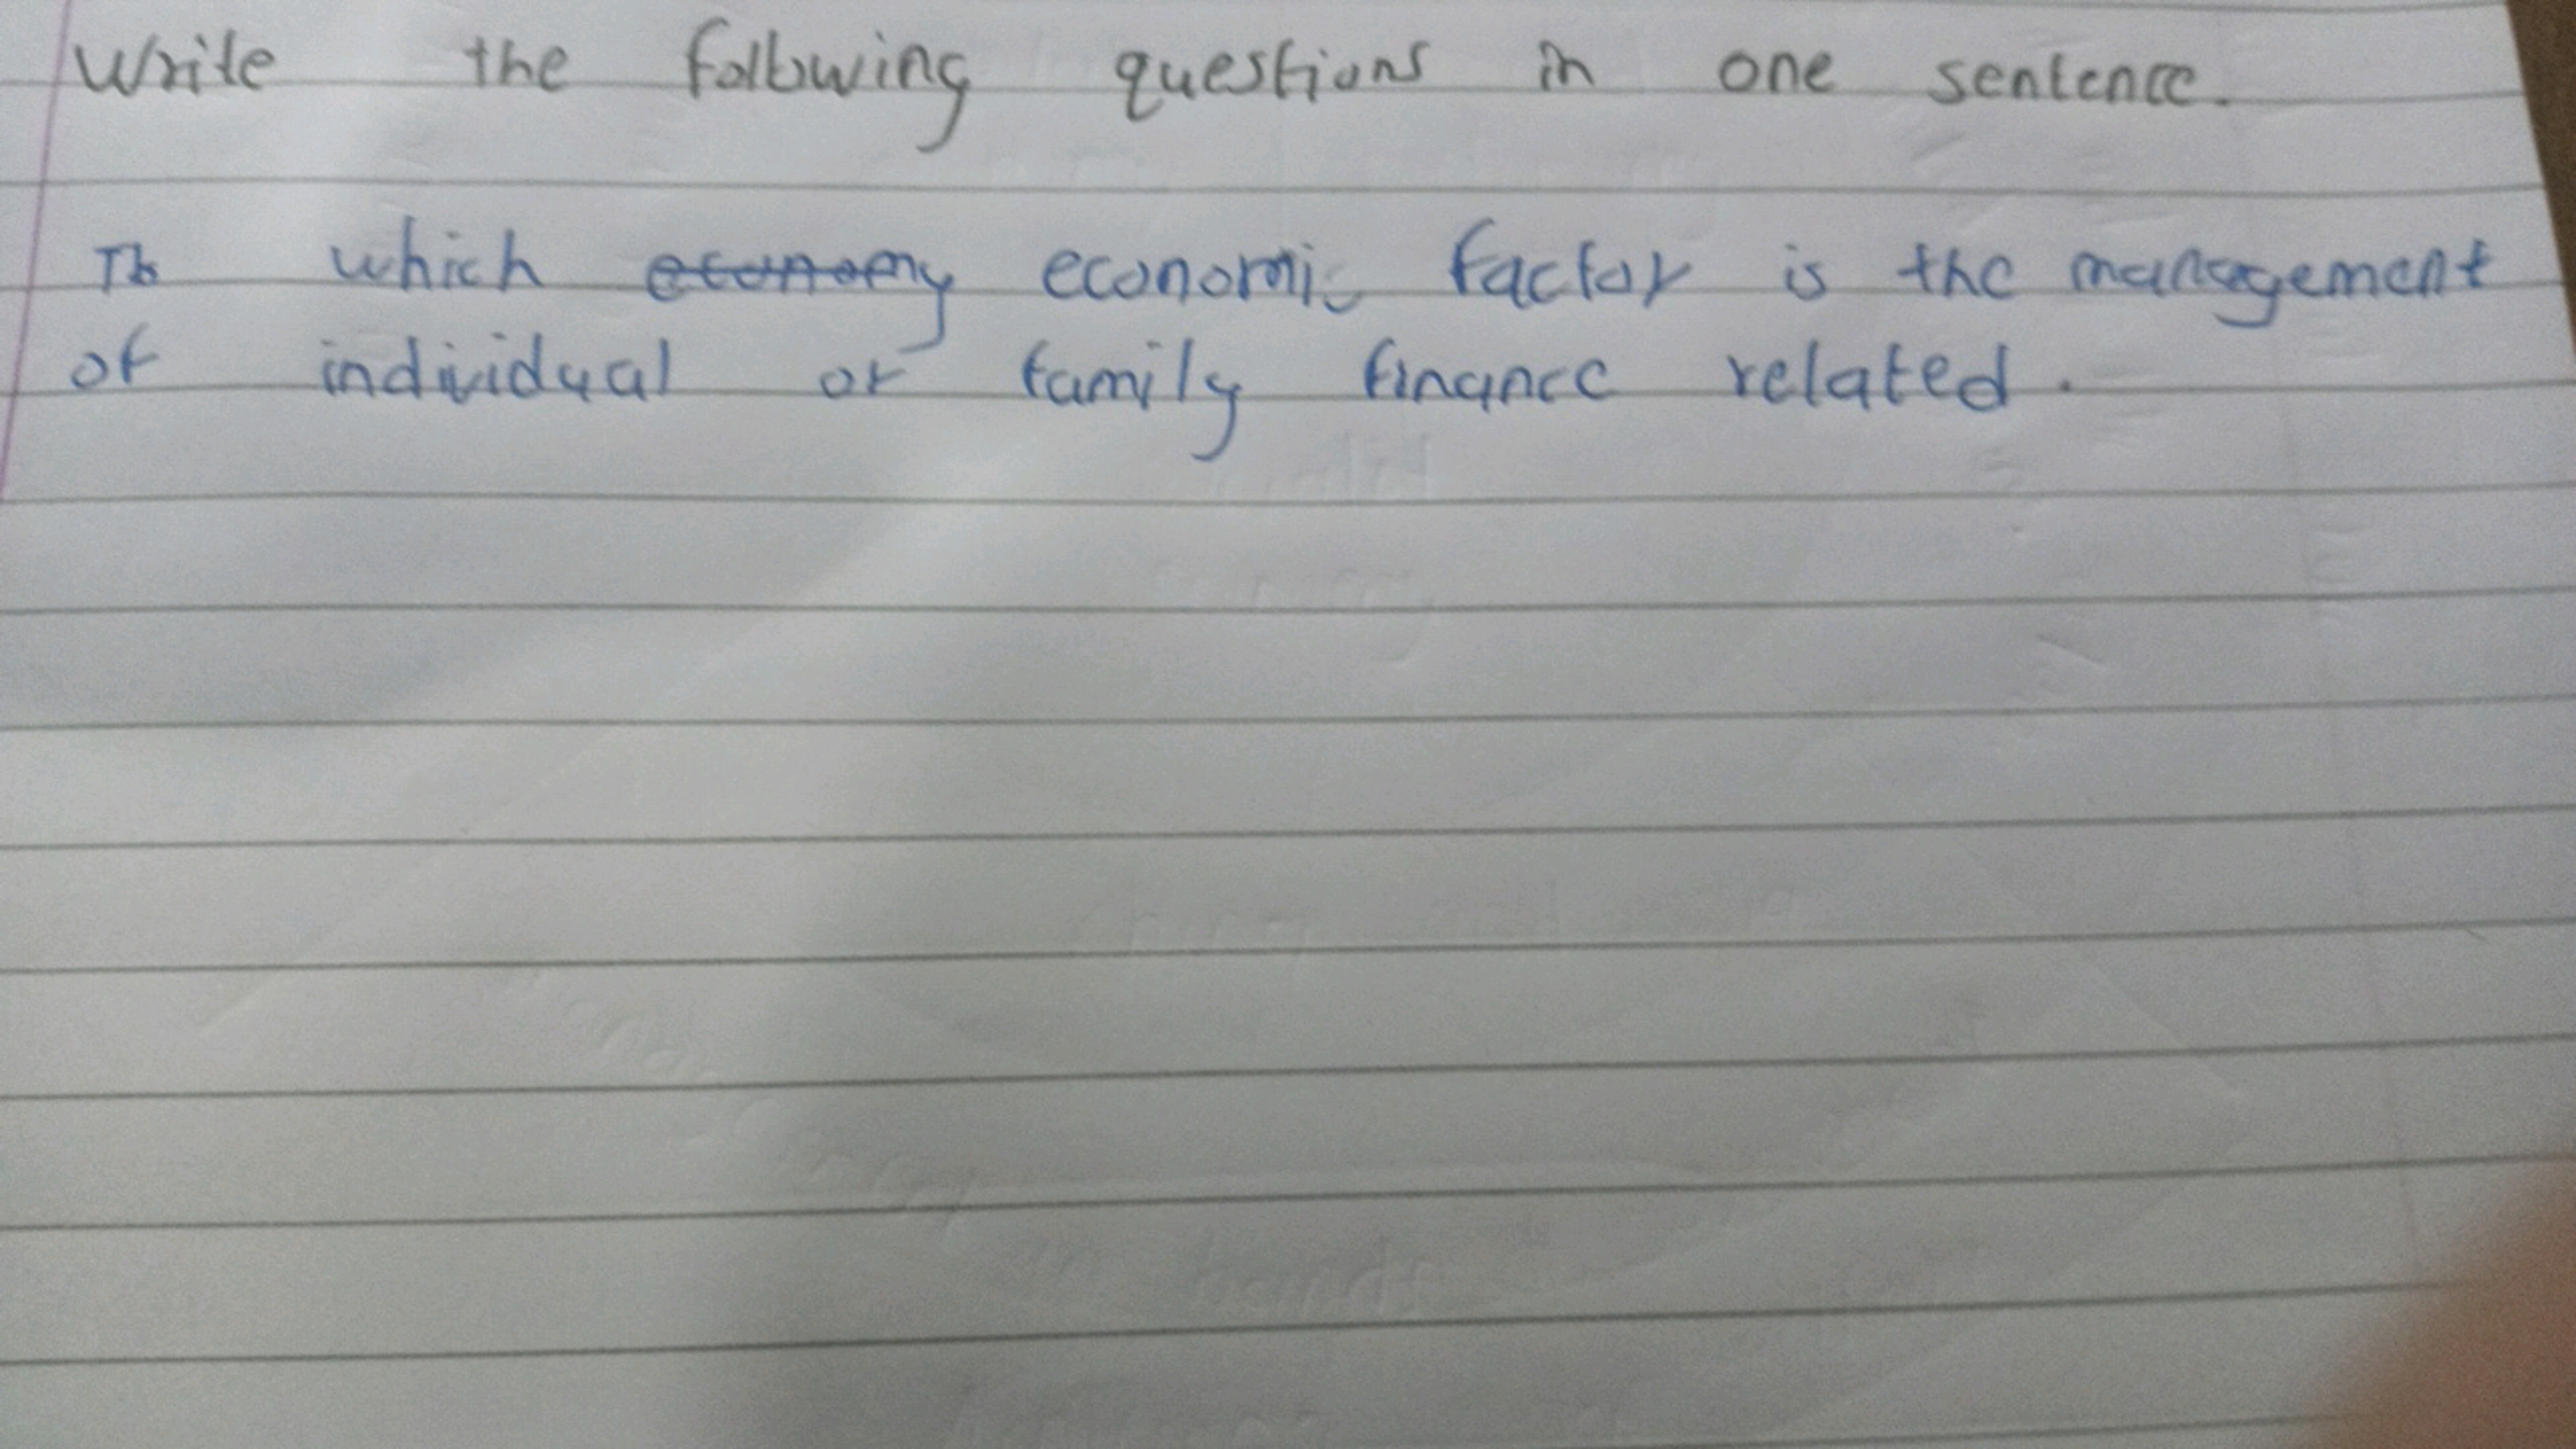 Write the following questions in one sentence.
Th which economy economic factor is the management
of individual or family finance related.